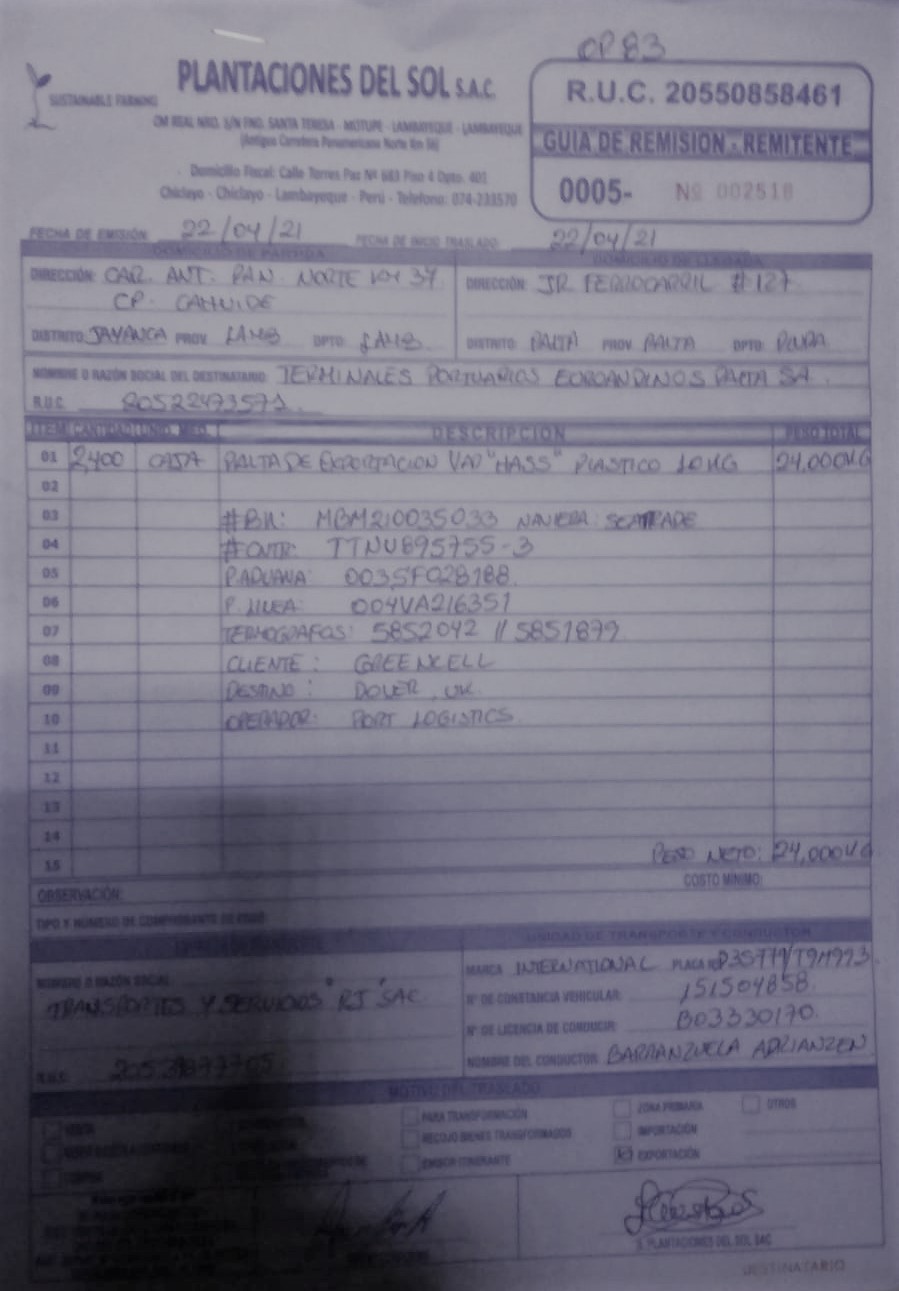 OP 83
SUSTAINABLE FARMING
PLANTACIONES DEL SOL S.A.C.
CM REAL NRO. S/N FND. SANTA TERESA - MOTUPE - LAMBAYEQUE - LAMBAYEQUE
(Antigua Carretera Panamericana Norte Km 36)
Domicilio Fiscal: Calle Torres Paz Nº 683 Piso 4 Dpto. 401
Chiclayo - Chiclayo - Lambayeque - Perú - Telefono: 074-233570
R.U.C. 20550858461
GUIA DE REMISION - REMITENTE
0005- Nº 002518
FECHA DE EMISIÓN: 22/04/21 FECHA DE INICIO TRASLADO: 22/04/21
DOMICILIO DE PARTIDA DOMICILIO DE LLEGADA
DIRECCIÓN: CAR. ANT. PAN. NORTE KM 37 DIRECCIÓN: JR FERROCARRIL # 127
CP. CAHUIDE
DISTRITO: JAYANCA PROV LAMB DPTO: LAMB. DISTRITO PAITA PROV PAITA DPTO: PIURA
NOMBRE O RAZÓN SOCIAL DEL DESTINATARIO: TERMINALES PORTUARIOS EUROANDINOS PAITA SA.
R.U.C. 20522473571
ITEM CANTIDAD UNID. MED. DESCRIPCION PESO TOTAL
01 2,400 CAJA PALTA DE EXPORTACION VAR "HASS" PLASTICO 10 KG 24,000KG
02
03 #BK: MBM210035033 NAVIERA: SEATRADE
04 #CNTR: TTNU895755-3
05 P. ADUANA: 0035F028188
06 P. LINEA: 004VA216351
07 TERMOGRAFOS: 5852042 // 5851879
08 CLIENTE: GREENCELL
09 DESTINO: DOVER, UK
10 OPERADOR: PORT LOGISTICS
11
12
13
14
15 PESO NETO: 24,000KG
COSTO MÍNIMO:
OBSERVACIÓN:
TIPO Y NÚMERO DE COMPROBANTE DE PAGO:
UNIDAD DE TRANSPORTE Y CONDUCTOR
MARCA INTERNATIONAL PLACA Nº
NOMBRE O RAZÓN SOCIAL
TRANSPORTES Y SERVICIOS "RJ" SAC
Nº DE CONSTANCIA VEHICULAR: 151504858
Nº DE LICENCIA DE CONDUCIR: B03330170
R.U.C. NOMBRE DEL CONDUCTOR: BARRANZUELA ADRIANZEN
MOTIVO DEL TRASLADO
VENTA PARA TRANSFORMACIÓN ZONA PRIMARIA OTROS
RECOJO BIENES TRANSFORMADOS IMPORTACIÓN
COMPRA EMISOR ITINERANTE EXPORTACIÓN
P. PLANTACIONES DEL SOL SAC
DESTINATARIO